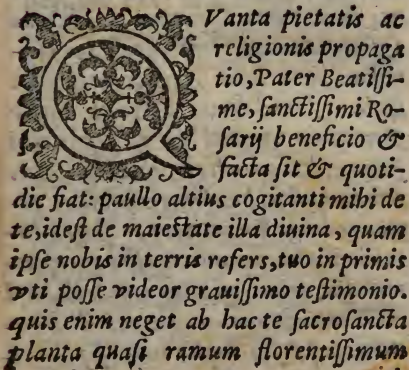 QVanta pietatis ac
religionis propaga
tio, Pater Beatissi-
me, sanctissimi Ro-
sarij beneficio &
facta sit & quoti-
die fiat: paullo altius cogitanti mihi de
te, idest de maiestate illa diuina, quam
ipse nobis in terris refers, tuo in primis
vti posse videor grauissimo testimonio.
quis enim neget ab hac te sacrosancta
planta quasi ramum florentissimum